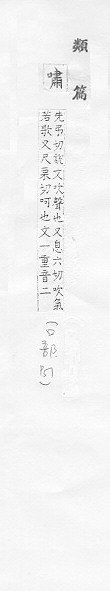 類篇
嘯
先弔切說文吹聲也又息六切吹氣
若歌又尺栗切呵也文一重音二
(口部